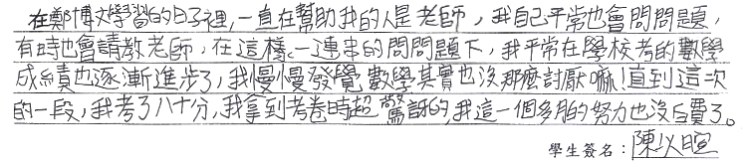 在鄭博文學習的日子裡,一直在幫助我的人是老師,我自己平常也會問問題,
有時也會請教老師,在這樣一連串的問問題下,我平常在學校考的數學
成績也逐漸進步了,我慢慢發覺數學其實也沒那麼討厭嘛!直到這次
的一段,我考了八十分,我拿到考卷時超驚訝的,我這一個多月的努力也沒白費了。
學生簽名:陳以暄